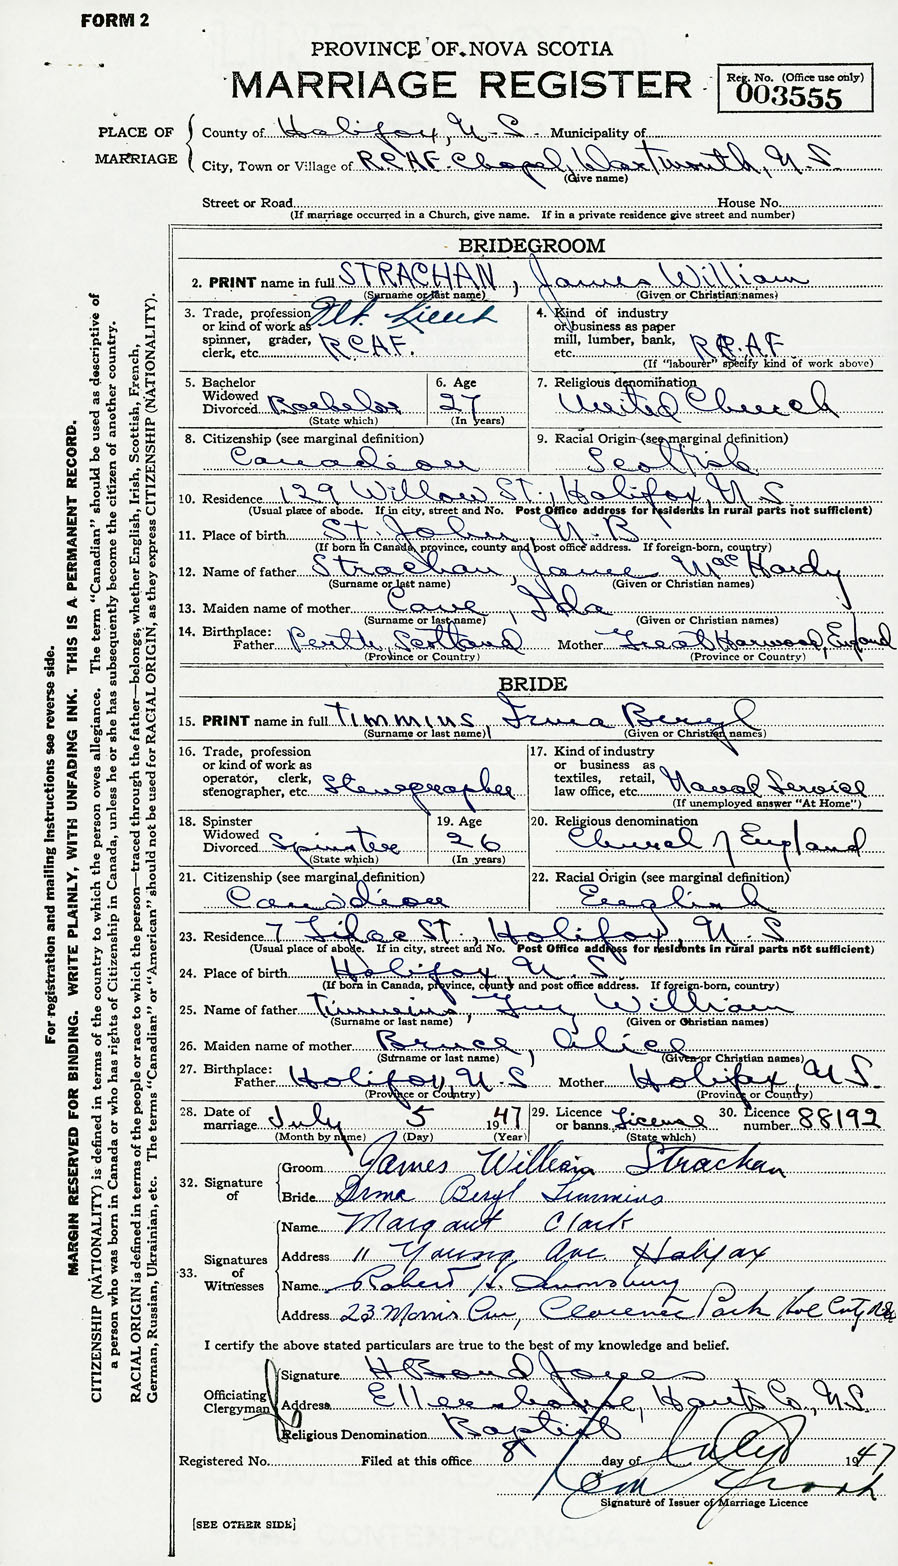 FORM 2
PROVINCE OF NOVA SCOTIA
MARRIAGE REGISTER
Reg. No. (Office use only)
003555
PLACE OF MARRIAGE
County of Halifax, N.S. Municipality of
City, Town or Village of R.C.A.F. Chapel, Dartmouth, N.S.
(Give name)
Street or Road House No.
(If marriage occurred in a Church, give name. If in a private residence give street and number)
BRIDEGROOM
2. PRINT name in full STRACHAN, James William
(Surname or last name) (Given or Christian names)
3. Trade, profession or kind of work as spinner, grader, clerk, etc. Flt. Lieut R.C.A.F.
4. Kind of industry or business as paper mill, lumber, bank, etc. R.C.A.F
(If "labourer" specify kind of work above)
5. Bachelor Widowed Divorced Bachelor
(State which)
6. Age 27
(In years)
7. Religious denomination United Church
8. Citizenship (see marginal definition) Canadian
9. Racial Origin (see marginal definition) Scottish
10. Residence 129 Willow St., Halifax, N.S
(Usual place of abode. If in city, street and No. Post Office address for residents in rural parts not sufficient)
11. Place of birth St. John N.B
(If born in Canada, province, county and post office address. If foreign-born, country)
12. Name of father Strachan, James MacHardy
(Surname or last name) (Given or Christian names)
13. Maiden name of mother Cave, Ida
(Surname or last name) (Given or Christian names)
14. Birthplace: Father Perth, Scotland Mother Great Harwood, England
(Province or Country) (Province or Country)
BRIDE
15. PRINT name in full TIMMINS, Irma Beryl
(Surname or last name) (Given or Christian names)
16. Trade, profession or kind of work as operator, clerk, stenographer, etc. Stenographer
17. Kind of industry or business as textiles, retail, law office, etc. Naval Service
(If unemployed answer "At Home")
18. Spinster Widowed Divorced Spinster
(State which)
19. Age 26
(In years)
20. Religious denomination Church of England
21. Citizenship (see marginal definition) Canadian
22. Racial Origin (see marginal definition) English
23. Residence 7 Lilac St., Halifax N.S
(Usual place of abode. If in city, street and No. Post Office address for residents in rural parts not sufficient)
24. Place of birth Halifax, N.S
(If born in Canada, province, county and post office address. If foreign-born, country)
25. Name of father Timmins, Guy William
(Surname or last name) (Given or Christian names)
26. Maiden name of mother Bruce, Alice
(Surname or last name) (Given or Christian names)
27. Birthplace: Father Halifax, N.S Mother Halifax, N.S.
(Province or Country) (Province or Country)
28. Date of marriage July 5 1947
(Month by name) (Day) (Year)
29. Licence or banns License
(State which)
30. Licence number 88192
32. Signature of
Groom James William Strachan
Bride Irma Beryl Timmins
33. Signatures of Witnesses
Name Margaret Clark
Address 11 Young Ave. Halifax
Name Robert H.
Address 23 Morris Clarence Park
I certify the above stated particulars are true to the best of my knowledge and belief.
Officiating Clergyman
Signature H Bond Jones
Address Ellershouse, Hants Co., N.S.
Religious Denomination Baptist
Registered No. Filed at this office 8 day of July 1947
Signature of Issuer of Marriage Licence
[SEE OTHER SIDE]
For registration and mailing instructions see reverse side.
MARGIN RESERVED FOR BINDING. WRITE PLAINLY, WITH UNFADING INK. THIS IS A PERMANENT RECORD.
CITIZENSHIP (NATIONALITY) is defined in terms of the country to which the person owes allegiance. The term "Canadian" should be used as descriptive of
a person who was born in Canada or who has rights of Citizenship in Canada, unless he or she has subsequently become the citizen of another country.
RACIAL ORIGIN is defined in terms of the people or race to which the person—traced through the father—belongs, whether English, Irish, Scottish, French,
German, Russian, Ukrainian, etc. The terms "Canadian" or "American" should not be used for RACIAL ORIGIN, as they express CITIZENSHIP (NATIONALITY).